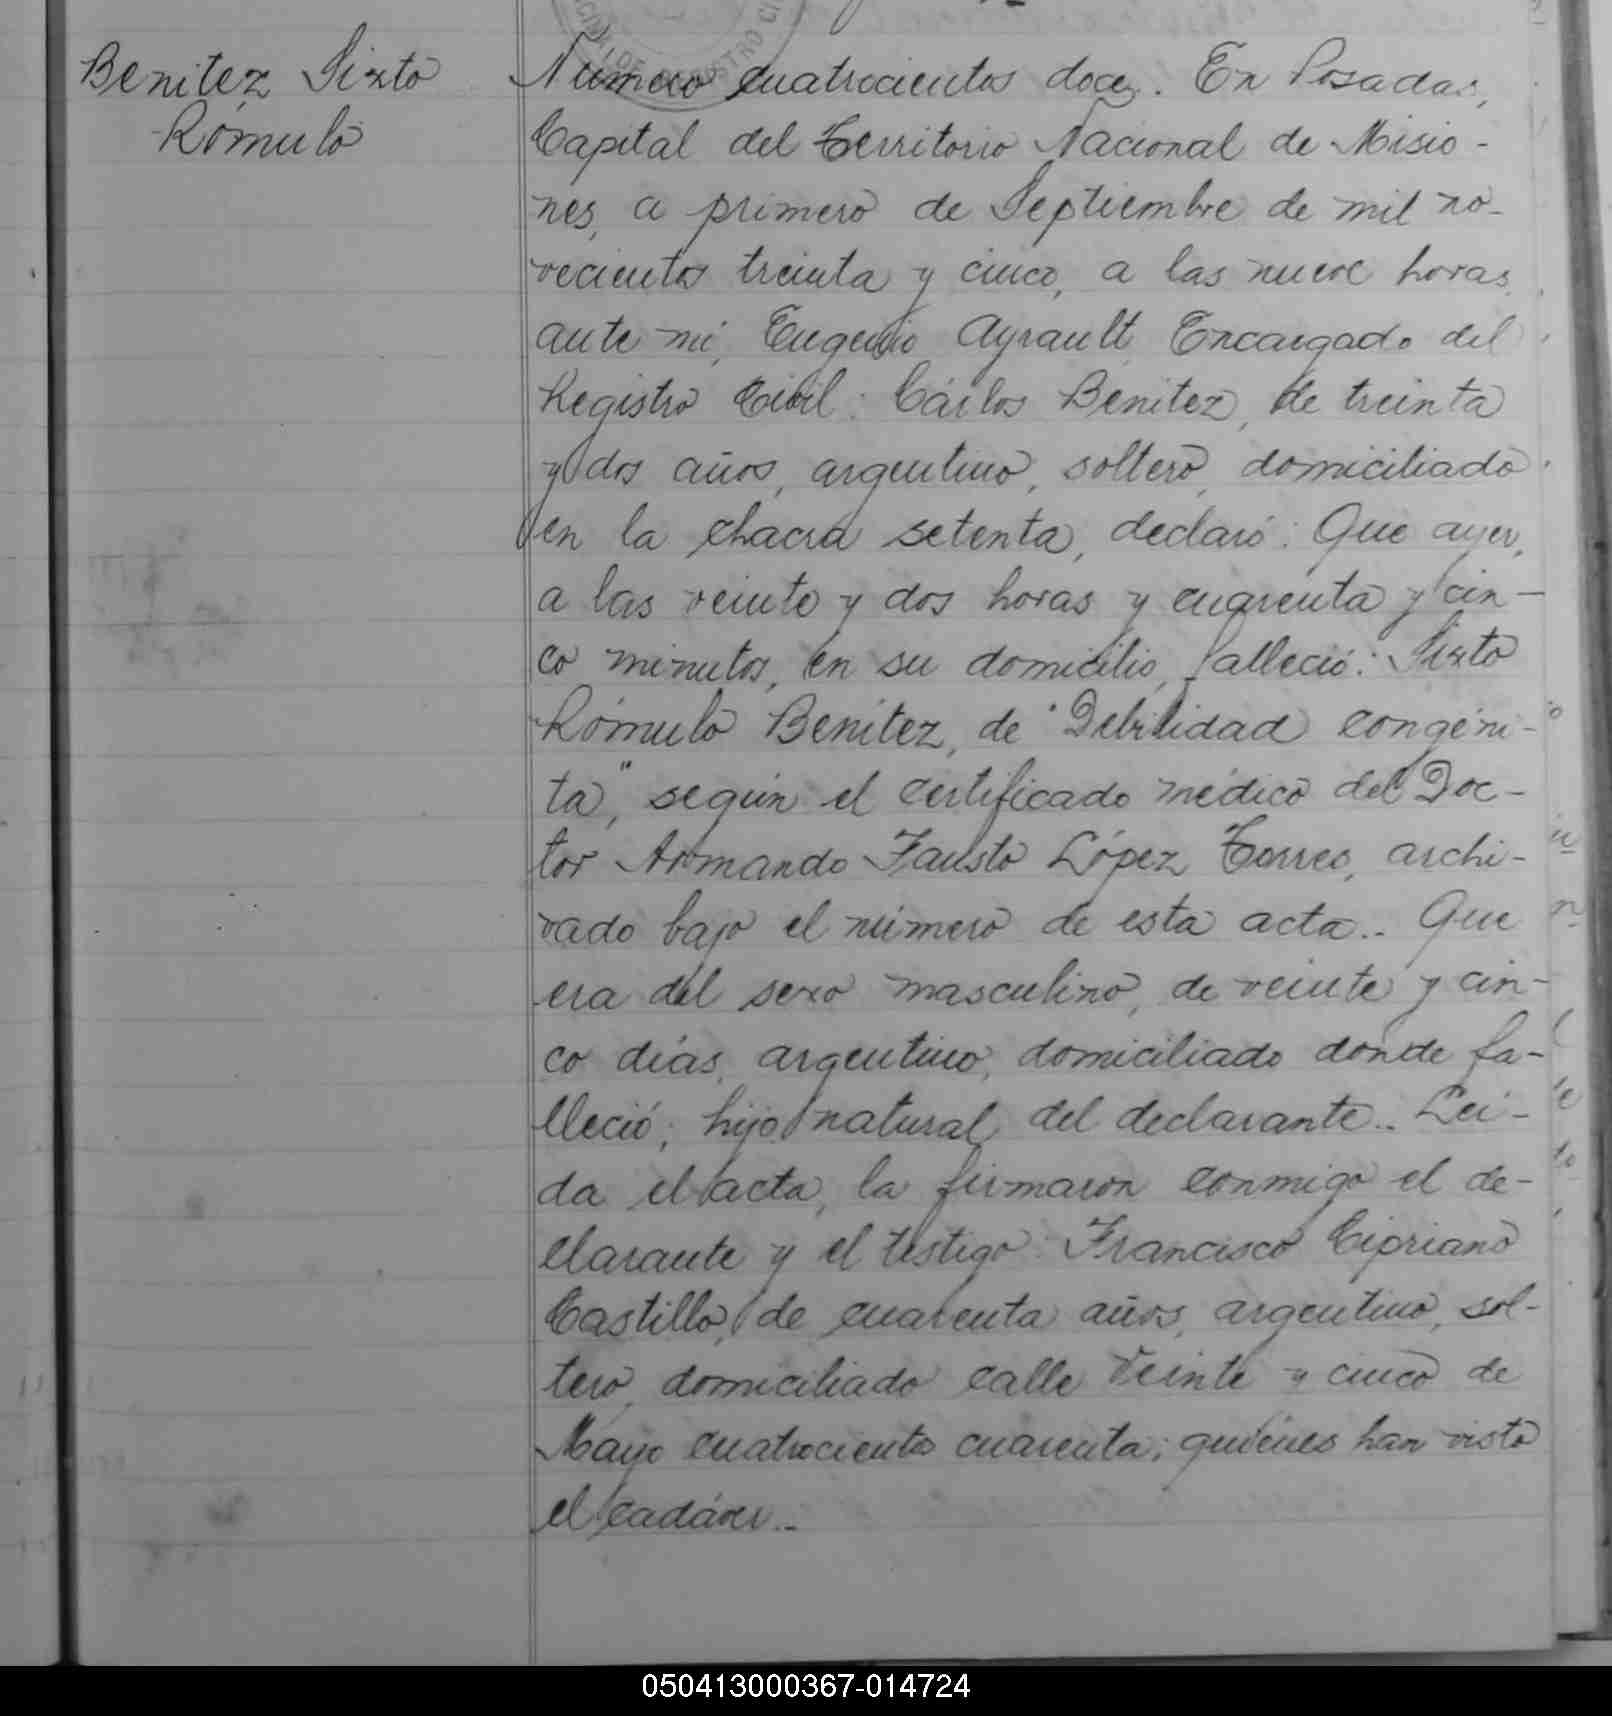 Benitez Sixto
Rómulo
Número cuatrocientos doce. En Posadas,
Capital del Territorio Nacional de Misio-
nes, a primero de Septiembre de mil no-
vecientos treinta y cinco, a las nueve horas,
ante mí, Eugenio Ayrault Encargado del
Registro Civil: Cárlos Benitez, de treinta
y dos años, argentino, soltero, domiciliado
en la chacra setenta, declaró: Que ayer,
a las veinte y dos horas y cuarenta y cin-
co minutos, en su domicilio, falleció: Sixto
Rómulo Benítez, de "Debilidad congéni-
ta", según el certificado médico del Doc-
tor Armando Fausto López Torres, archi-
vado bajo el número de esta acta.. Que
era del sexo masculino, de veinte y cin-
co días, argentino, domiciliado donde fa-
lleció; hijo natural del declarante.. Leí-
da el acta, la firmaron conmigo el de-
clarante y el testigo: Francisco Cipriano
Castillo, de cuarenta años, argentino, sol-
tero, domiciliado calle Veinte y cinco de
Mayo cuatrocientos cuarenta; quiénes han visto
el cadáver..
050413000367-014724